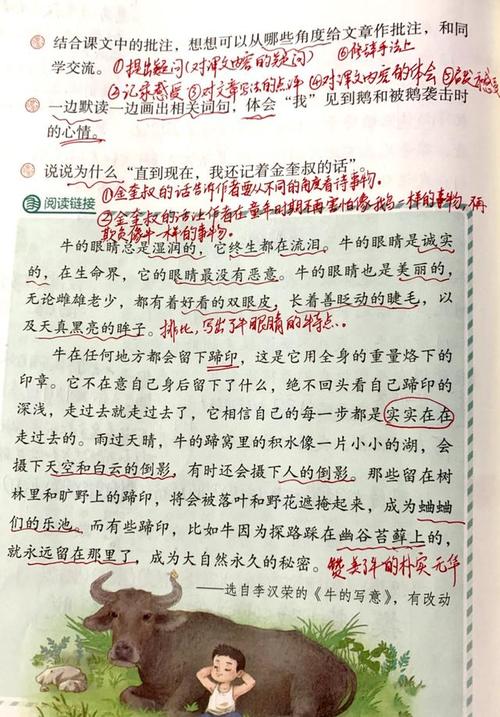 结合课文中的批注，想想可以从哪些角度给文章作批注，和同
学交流。①提出疑问(对课文内容的疑问) ⑥修辞手法上
②记录感受 ③对文章写法的点评 ④对课文内容的体会 ⑤启发感受
一边默读一边画出相关词句，体会“我”见到鹅和被鹅袭击时
的心情。
说说为什么“直到现在，我还记着金奎叔的话”。
①金奎叔的话告诉作者要从不同的角度看待事物。
阅读链接
②金奎叔的话让作者在童年时期不再害怕像我鸟一样的事物，再
欺负像牛一样的事物。
牛的眼睛总是湿润的，它终生都在流泪。牛的眼睛是诚实
的，在生命界，它的眼睛最没有恶意。牛的眼睛也是美丽的，
无论雌雄老少，都有着好看的双眼皮，长着善眨动的睫毛，以
及天真黑亮的眸子。排比，写出了牛眼睛的特点。
牛在任何地方都会留下蹄印，这是它用全身的重量烙下的
印章。它不在意自己身后留下了什么，绝不回头看自己蹄印的
深浅，走过去就走过去了，它相信自己的每一步都是实实在在
走过去的。雨过天晴，牛的蹄窝里的积水像一片小小的湖，会
摄下天空和白云的倒影，有时还会摄下人的倒影。那些留在树
林里和旷野上的蹄印，将会被落叶和野花遮掩起来，成为蛐蛐
们的乐池。而有些蹄印，比如牛因为探路踩在幽谷苔藓上的，
就永远留在那里了，成为大自然永久的秘密。赞美了牛的朴实无华
——选自李汉荣的《牛的写意》，有改动